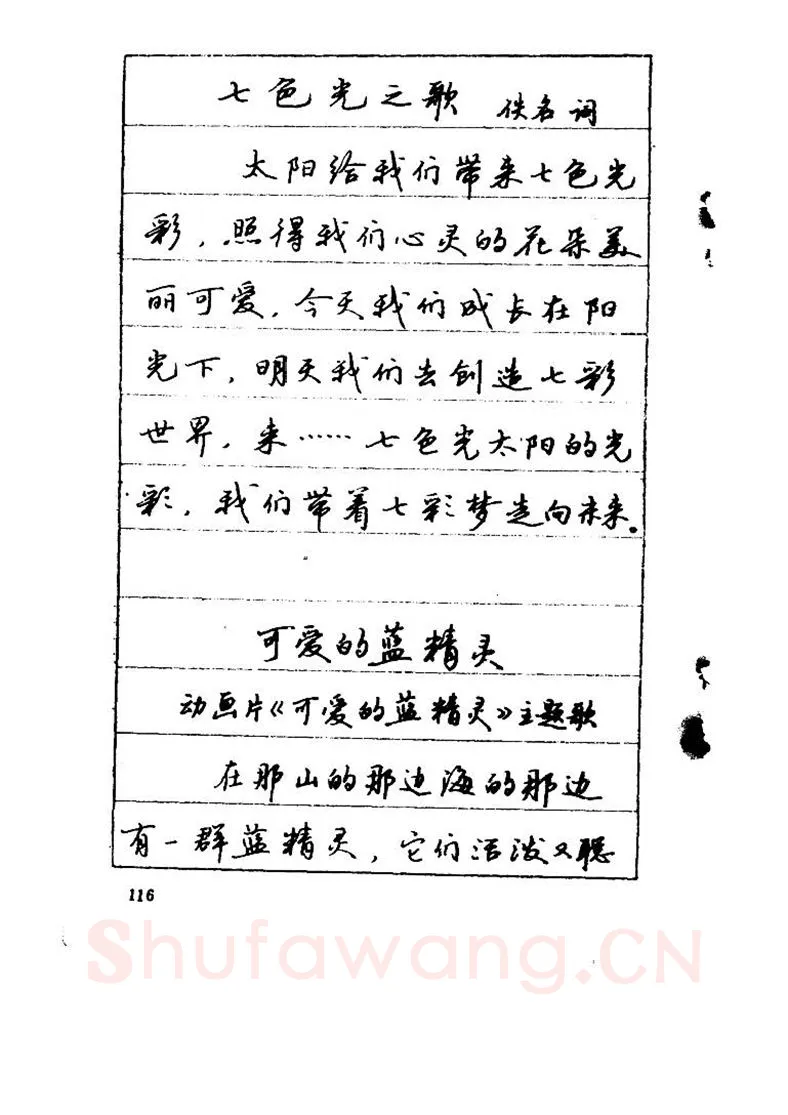 七色光之歌 佚名 词
太阳给我们带来七色光
彩，照得我们心灵的花朵美
丽可爱，今天我们成长在阳
光下，明天我们去创造七彩
世界，来……七色光太阳的光
彩，我们带着七彩梦走向未来。
可爱的蓝精灵
动画片《可爱的蓝精灵》主题歌
在那山的那边海的那边
有一群蓝精灵，它们活泼又聪
116
Shufawang.CN